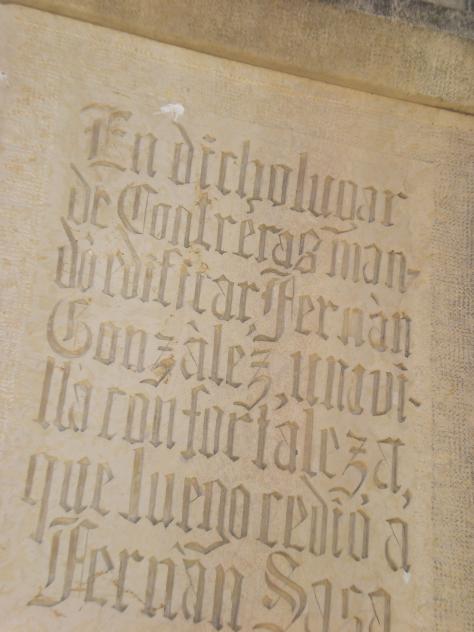 En dicho lugar
de Contreras man-
dò edificar, Fernàn
Gonzàlez, una vi-
lla con fortaleza,
que luego cediò a
Fernàn